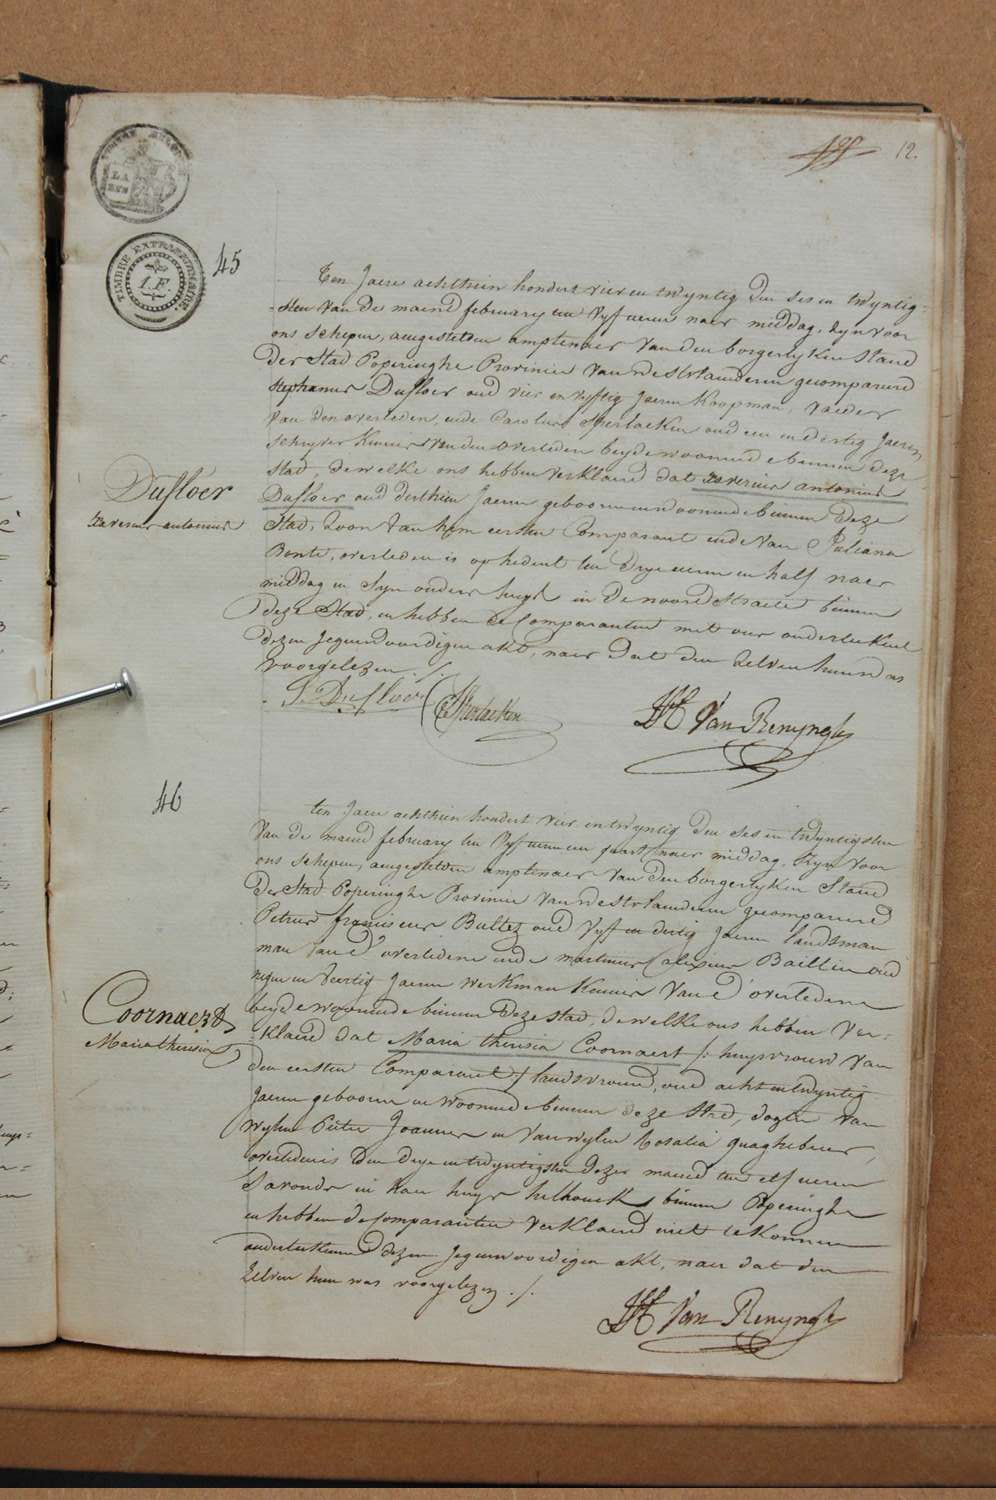 12.
TIMBRE EXTRAORDINAIRE.
I.F.
45
Ten Jaere achthien hondert vier en twyntig den ses en twyntig-
-sten van de maend february ten vyf ueren naer middag, zyn voor
ons schepen, aengestelden amptenaer van den borgerlyken stand
der stad Poperinghe Provincie van Westvlaenderen gecompareerd
Stephanus Dufloer oud vier en vyftig jaeren koopman, vaeder
van den overleden, ende Carolus Sterlaeken oud een en dertig jaeren,
schryver kennis van den overleden beyde woonende binnen deze
stad, dewelke ons hebben verklaerd dat Xaverius antonius
Dufloer oud derthien jaeren gebooren en woonende binnen deze
stad, zoon van hem eersten Comparant ende van Juliana
Bonte, overleden is op heden ten drye ueren en half naer
middag in syn ouders huys in de noordstraete binnen
deze stad, en hebben de Comparanten met ons onderteekent
dezen jegenwoordigen akt, naer dat den zelven hun was
voorgelezen ./.
Dufloer
Xaverius antonius
S. Dufloer
C. Sterlaeken
Van Renynghe
46
ten jaere achthien hondert vier en twyntig den ses en twyntigsten
van de maend february ten vyf ueren een quart naer middag, zyn voor
ons schepen, aengestelden amptenaer van den borgerlyken stand
der stad Poperinghe Provincie van Westvlaenderen gecompareerd
Petrus franciscus Bultez oud vyf en dertig jaeren landsman
man van d'overledene ende martinus alexius Baillin oud
negen en veertig jaeren werkman kennis van d'overledene
beyde woonende binnen deze stad, dewelke ons hebben ver-
-klaerd dat Maria theresia Coornaert /: huysvrouw van
den eersten Comparant :/ landsvrouw, oud acht en twyntig
jaeren gebooren en woonende binnen deze stad, dogter van
wylen Pieter Joannes en van wylen Rosalia quaghebeur,
overleden is den drye en twyntigsten dezer maend ten elf ueren
s'avonds in haer huys helhoek binnen Poperinghe
en hebben de Comparanten verklaerd niet te konnen
onderteekenen dezen jegenwoordigen akt, naer dat den
zelven hun was voorgelezen ./.
Coornaert
Maria theresia
Van Renynghe